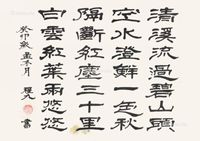 清溪流過碧山頭
空水澄鮮一色秋
隔斷紅塵三十里
白雲紅葉兩悠悠
癸卯 月 書